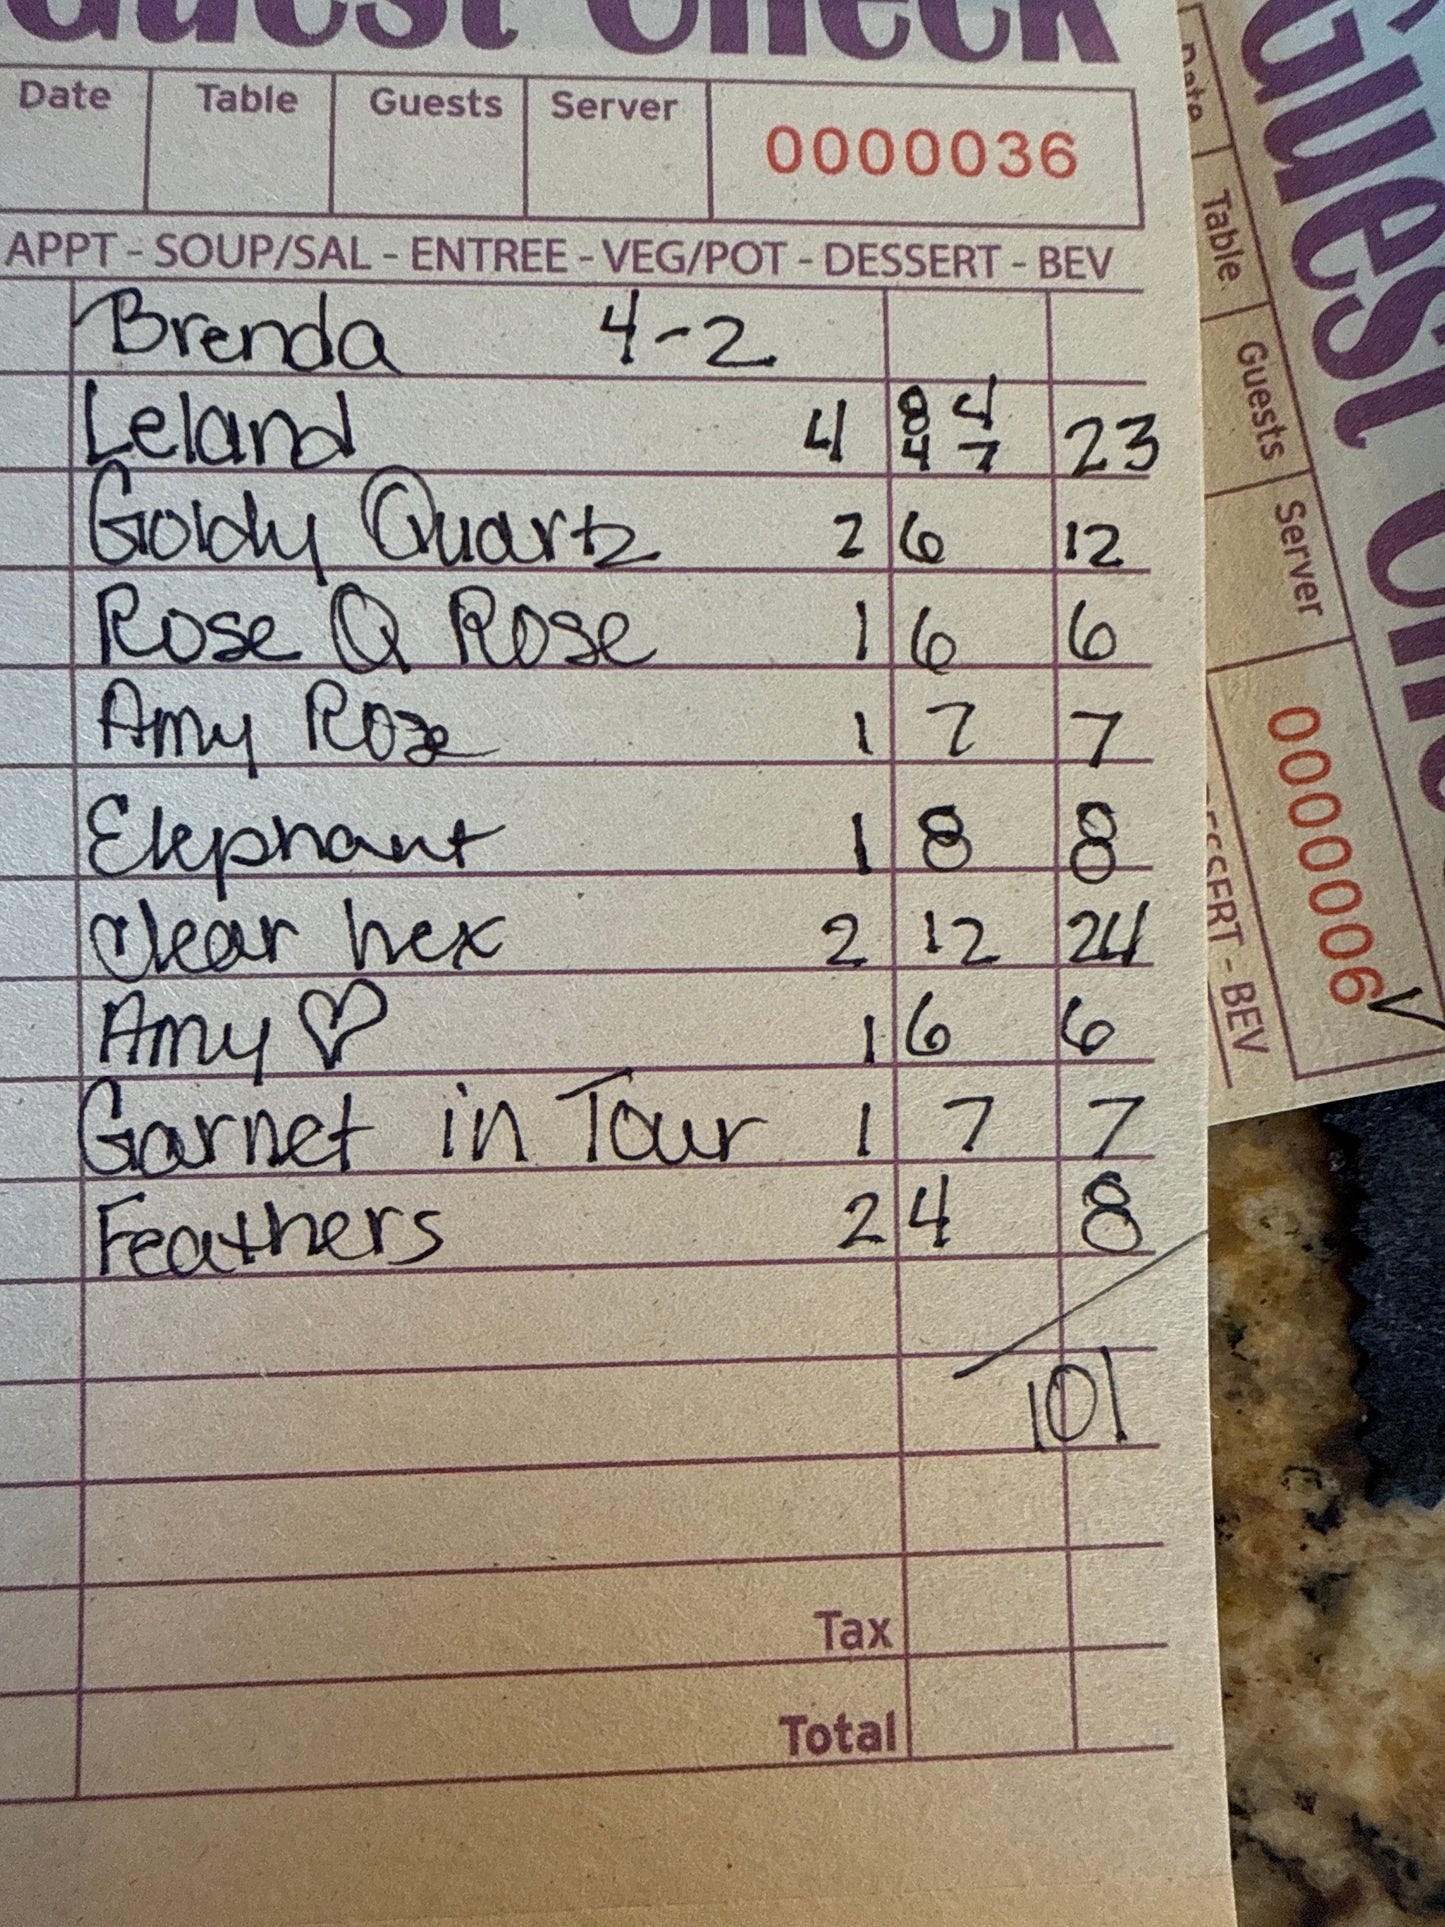 Guest Check
Date Table Guests Server 0000036
APPT - SOUP/SAL - ENTREE - VEG/POT - DESSERT - BEV
Brenda 4-2
Leland 4 8 4 4 7 23
Goldy Quartz 2 6 12
Rose Q Rose 1 6 6
Amy Roze 1 7 7
Elephant 1 8 8
Clear hex 2 12 24
Amy ♡ 1 6 6
Garnet in Tour 1 7 7
Feathers 2 4 8
101
Tax
Total
Guest Che
Date Table Guests Server 0000006
SSERT - BEV